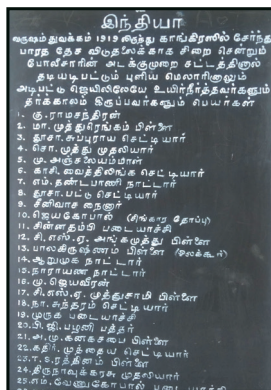 இந்தியா
வருஷம் துவக்கம் 1919 லிருந்து காங்கிரஸில் சேர்ந்து
பாரத தேச விடுதலைக்காக சிறை சென்றும்
போலீசாரின் அடக்குமுறை சட்டத்தினால்
தடியடிபட்டும் புளிய மெலாரினாலும்
அடிபட்டு ஜெயிலிலேயே உயிர்நீர்த்தவர்களும்
தற்காலம் இருப்பவர்களும் பெயர்கள்
1. கு. ராமசந்திரன்
2. மா. முத்துரெங்கம் பிள்ளை
3. தூசா. சுப்புராய செட்டியார்
4. சொ. முத்து முதலியார்
5. மு. அஞ்சலையம்மாள்
6. காசி. வைத்திலிங்க செட்டியார்
7. எம். தண்டபாணி நாட்டார்
8. தூசா. பட்டு செட்டியார்
9. சீனிவாச நைனார்
10. ஜெயகோபால் (சிங்கார தோப்பு)
11. சின்னதம்பி படையாச்சி
12. சி. எஸ். ஏ. அங்கமுத்து பிள்ளை
13. பாலகிருஷ்ணம் பிள்ளை (ஒலக்கூர்)
14. ஆறுமுக நாட்டார்
15. நாராயண நாட்டார்
16. மு. ஜெயவீரன்
17. சி. எஸ். ஏ. முத்துசாமி பிள்ளை
18. நா. சுந்தரம் செட்டியார்
19. முருக படையாச்சி
20. பி. ஜி. பழனி பத்தர்
21. அ. மு. கனகசபை பிள்ளை
22. கதிர். முத்தைய செட்டியார்
23. T. S. ரத்தினம் பிள்ளை
24. திருநாவுக்கரசு முதலியார்
25. எம். வேணுகோபால்